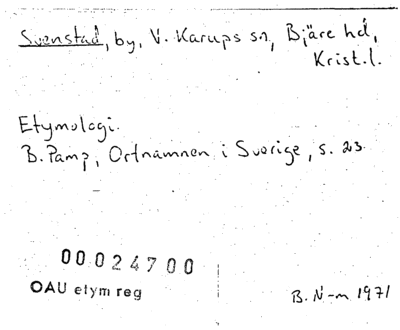 Svenstad, by, V. Karups sn, Bjäre hd,
Krist. l.
Etymologi.
B. Pamp, Ortnamnen i Sverige, s. 23.
00.024700
OAU etym reg
B. N-m 1971